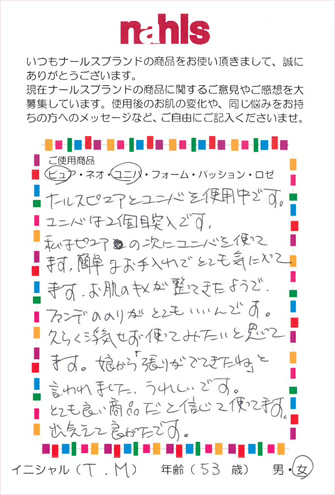 nahls
いつもナールスブランドの商品をお使い頂きまして、誠に
ありがとうございます。
現在ナールスブランドの商品に関するご意見やご感想を大
募集しています。使用後のお肌の変化や、同じ悩みをお持
ちの方へのメッセージなど、ご自由にご記入くださいませ。
ご使用商品
ピュア・ネオ・ユニバ・フォーム・パッション・ロゼ
ナールスピュアとユニバを使用中です。
ユニバは2個目突入です。
私はピュアの次にユニバを使って
ます。簡単なお手入れでとても気に入って
ます。お肌のキメが整ってきたようで、
ファンデののりがとてもいいんです。
久らく浮気せず使ってみたいと思って
ます。娘から「張りがでてきたね」と
言われました。うれしいです。
とても良い商品だと信じて使ってます。
出会えて良かったです。
イニシャル（T.M） 年齢（53 歳） 男・女